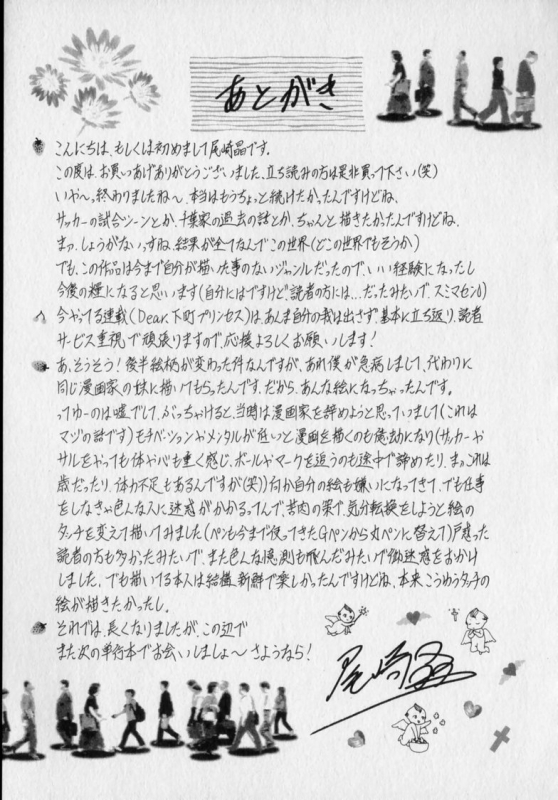 あとがき
こんにちは、もしくは初めまして尾崎晶です。
この度は、お買いあげありがとうございました、立ち読みの方は是非買って下さい(笑)
いや〜。終わりましたね〜、本当はもうちょっと続けたかったんですけどね、
サッカーの試合シーンとか、千葉家の過去の話とか、ちゃんと描きたかったんですけどね、
まっ、しょうがないっすね、結果が全てなんでこの世界(どこの世界でもそうか)
でも、この作品は今まで自分が描いた事のないジャンルだったので、いい経験になったし
今後の糧になると思います(自分にはですけど読者の方には…だったみたいで、スミマセン)
今やってる連載(Dear.下町プリンセス)は、あんま自分の我は出さず、基本に立ち返り、読者
サービス重視で頑張りますので、応援よろしくお願いします!
あ、そうそう!後半絵柄が変わった件なんですが、あれ僕が急病しまして、代わりに
同じ漫画家の妹に描いてもらったんです、だから、あんな絵になっちゃったんです。
ってゆーのは嘘でして、ぶっちゃけると、当時は漫画家を辞めようと思っていまして(これは
マジの話です)モチベーションやメンタルが低いと漫画を描くのも億劫になり(サッカーや
サルをやっても体や心も重く感じ、ボールやマークを追うのも途中で諦めたり、まっこれは
歳だったり、体力不足もあるんですが(笑))何か自分の絵も嫌いになってきて、でも仕事
をしなきゃ色んな人に迷惑がかかるってんで、苦肉の策で、気分転換をしようと絵の
タッチを変えて描いてみました(ペンも今まで使ってきたGペンから丸ペンに替えて)戸惑った
読者の方も多かったみたいで、また色んな憶測も飛んだみたいで御迷惑をおかけ
しました、でも描いている本人は結構、新鮮で楽しかったんですけどね、本来こうゆうタッチの
絵が描きたかったし。
それでは、長くなりましたが、この辺で
また次の単行本でお会いしましょ〜さようなら!
尾崎晶